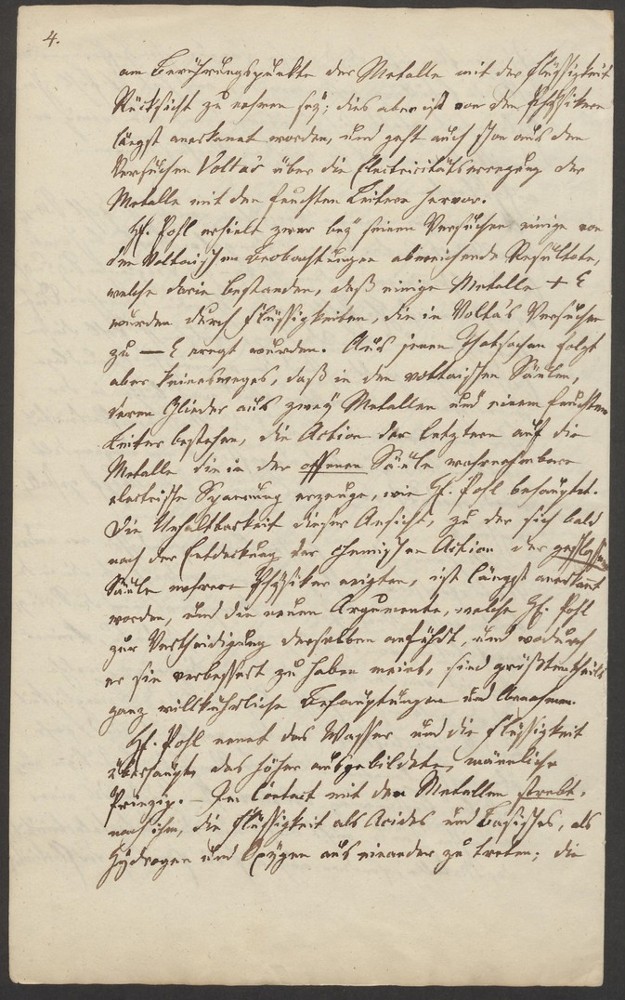 4.
am Berührungspunkte der Metalle mit der Flüssigkeit
Rücksicht zu nehmen sey; dies aber ist von den Physikern
längst anerkannt worden, und geht auch schon aus den
Versuchen Volta's über die Electricitätserregung der
Metalle mit den feuchten Leitern hervor.
H. Pohl erhielt zwar bey seinen Versuchen einige von
den Voltaischen Beobachtungen abweichende Resultate,
welche darin bestanden, daß einige Metalle + E
wurden durch Flüssigkeiten, die in Volta's Versuchen
zu — E erregt wurden. Aus jenen Thatsachen folgt
aber keinesweges, daß in den voltaischen Säulen,
deren Glieder aus zwey Metallen und einem feuchten
Leiter bestehen, die Action der letztern auf die
Metalle die in der offenen Säule wahrnehmbare
electrische Spannung erzeuge, wie H. Pohl behauptet.
Die Unhaltbarkeit dieser Ansicht, zu der sich bald
nach der Entdeckung der chemischen Action der geschlossenen
Säule mehrere Physiker neigten, ist längst anerkannt
worden, und die neuen Argumente, welche H. Pohl
zur Vertheidigung derselben anführt, und wodurch
er sie verbessert zu haben meint, sind größtentheils
ganz willkührliche Behauptungen und Annahmen.
H. Pohl nennt das Wasser und die Flüssigkeit
überhaupt das höher ausgebildete, männliche
Prinzip. – Im Contact mit den Metallen strebt,
nach ihm, die Flüssigkeit als Acides und Basisches, als
Hydrogen und Oxygen aus einander zu treten; die